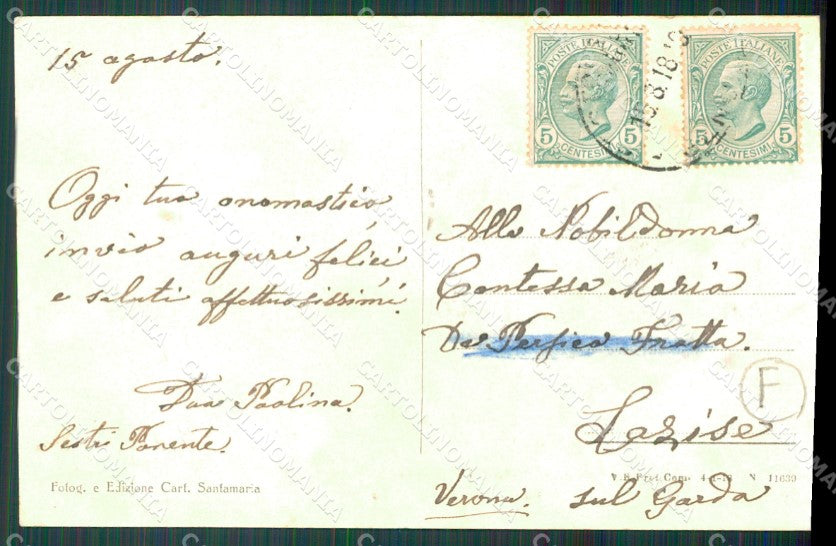 15 agosto.
Oggi tuo onomastico
invio auguri felici
e saluti affettuosissimi.
Tua Paolina.
Sestri Ponente.
Fotog. e Edizione Cart. Santamaria
POSTE ITALIANE
5 5
CENTESIMI
POSTE ITALIANE
5 5
CENTESIMI
18
Alla Nobildonna
Contessa Maria
Da Persico Fratta.
F
Lazise
N 11639
Verona. sul Garda
CARTOLINOMANIA